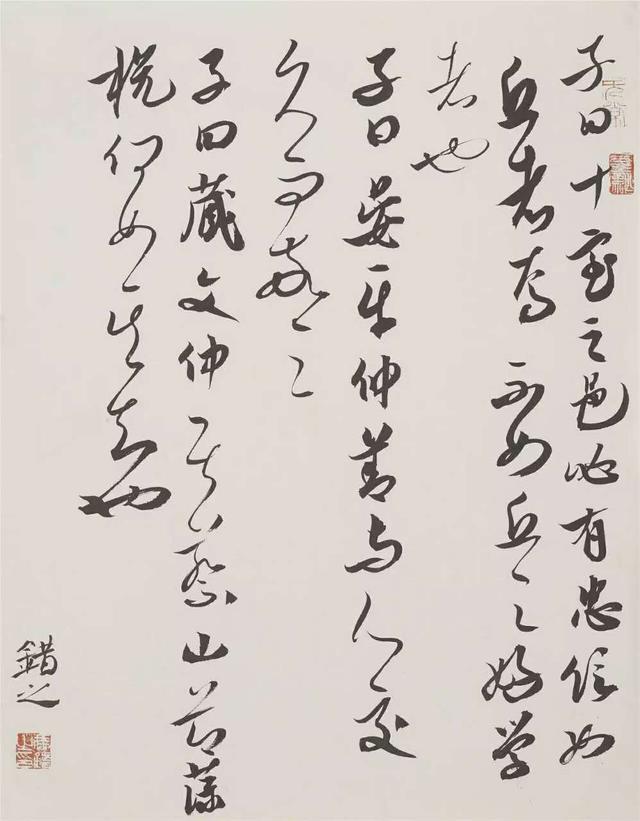 子曰十室之邑必有忠信如
丘者焉不如丘之好学
者也
子曰晏平仲善与人交
久而敬之
子曰藏文仲居蔡山节藻
棁何如其知也
錯之